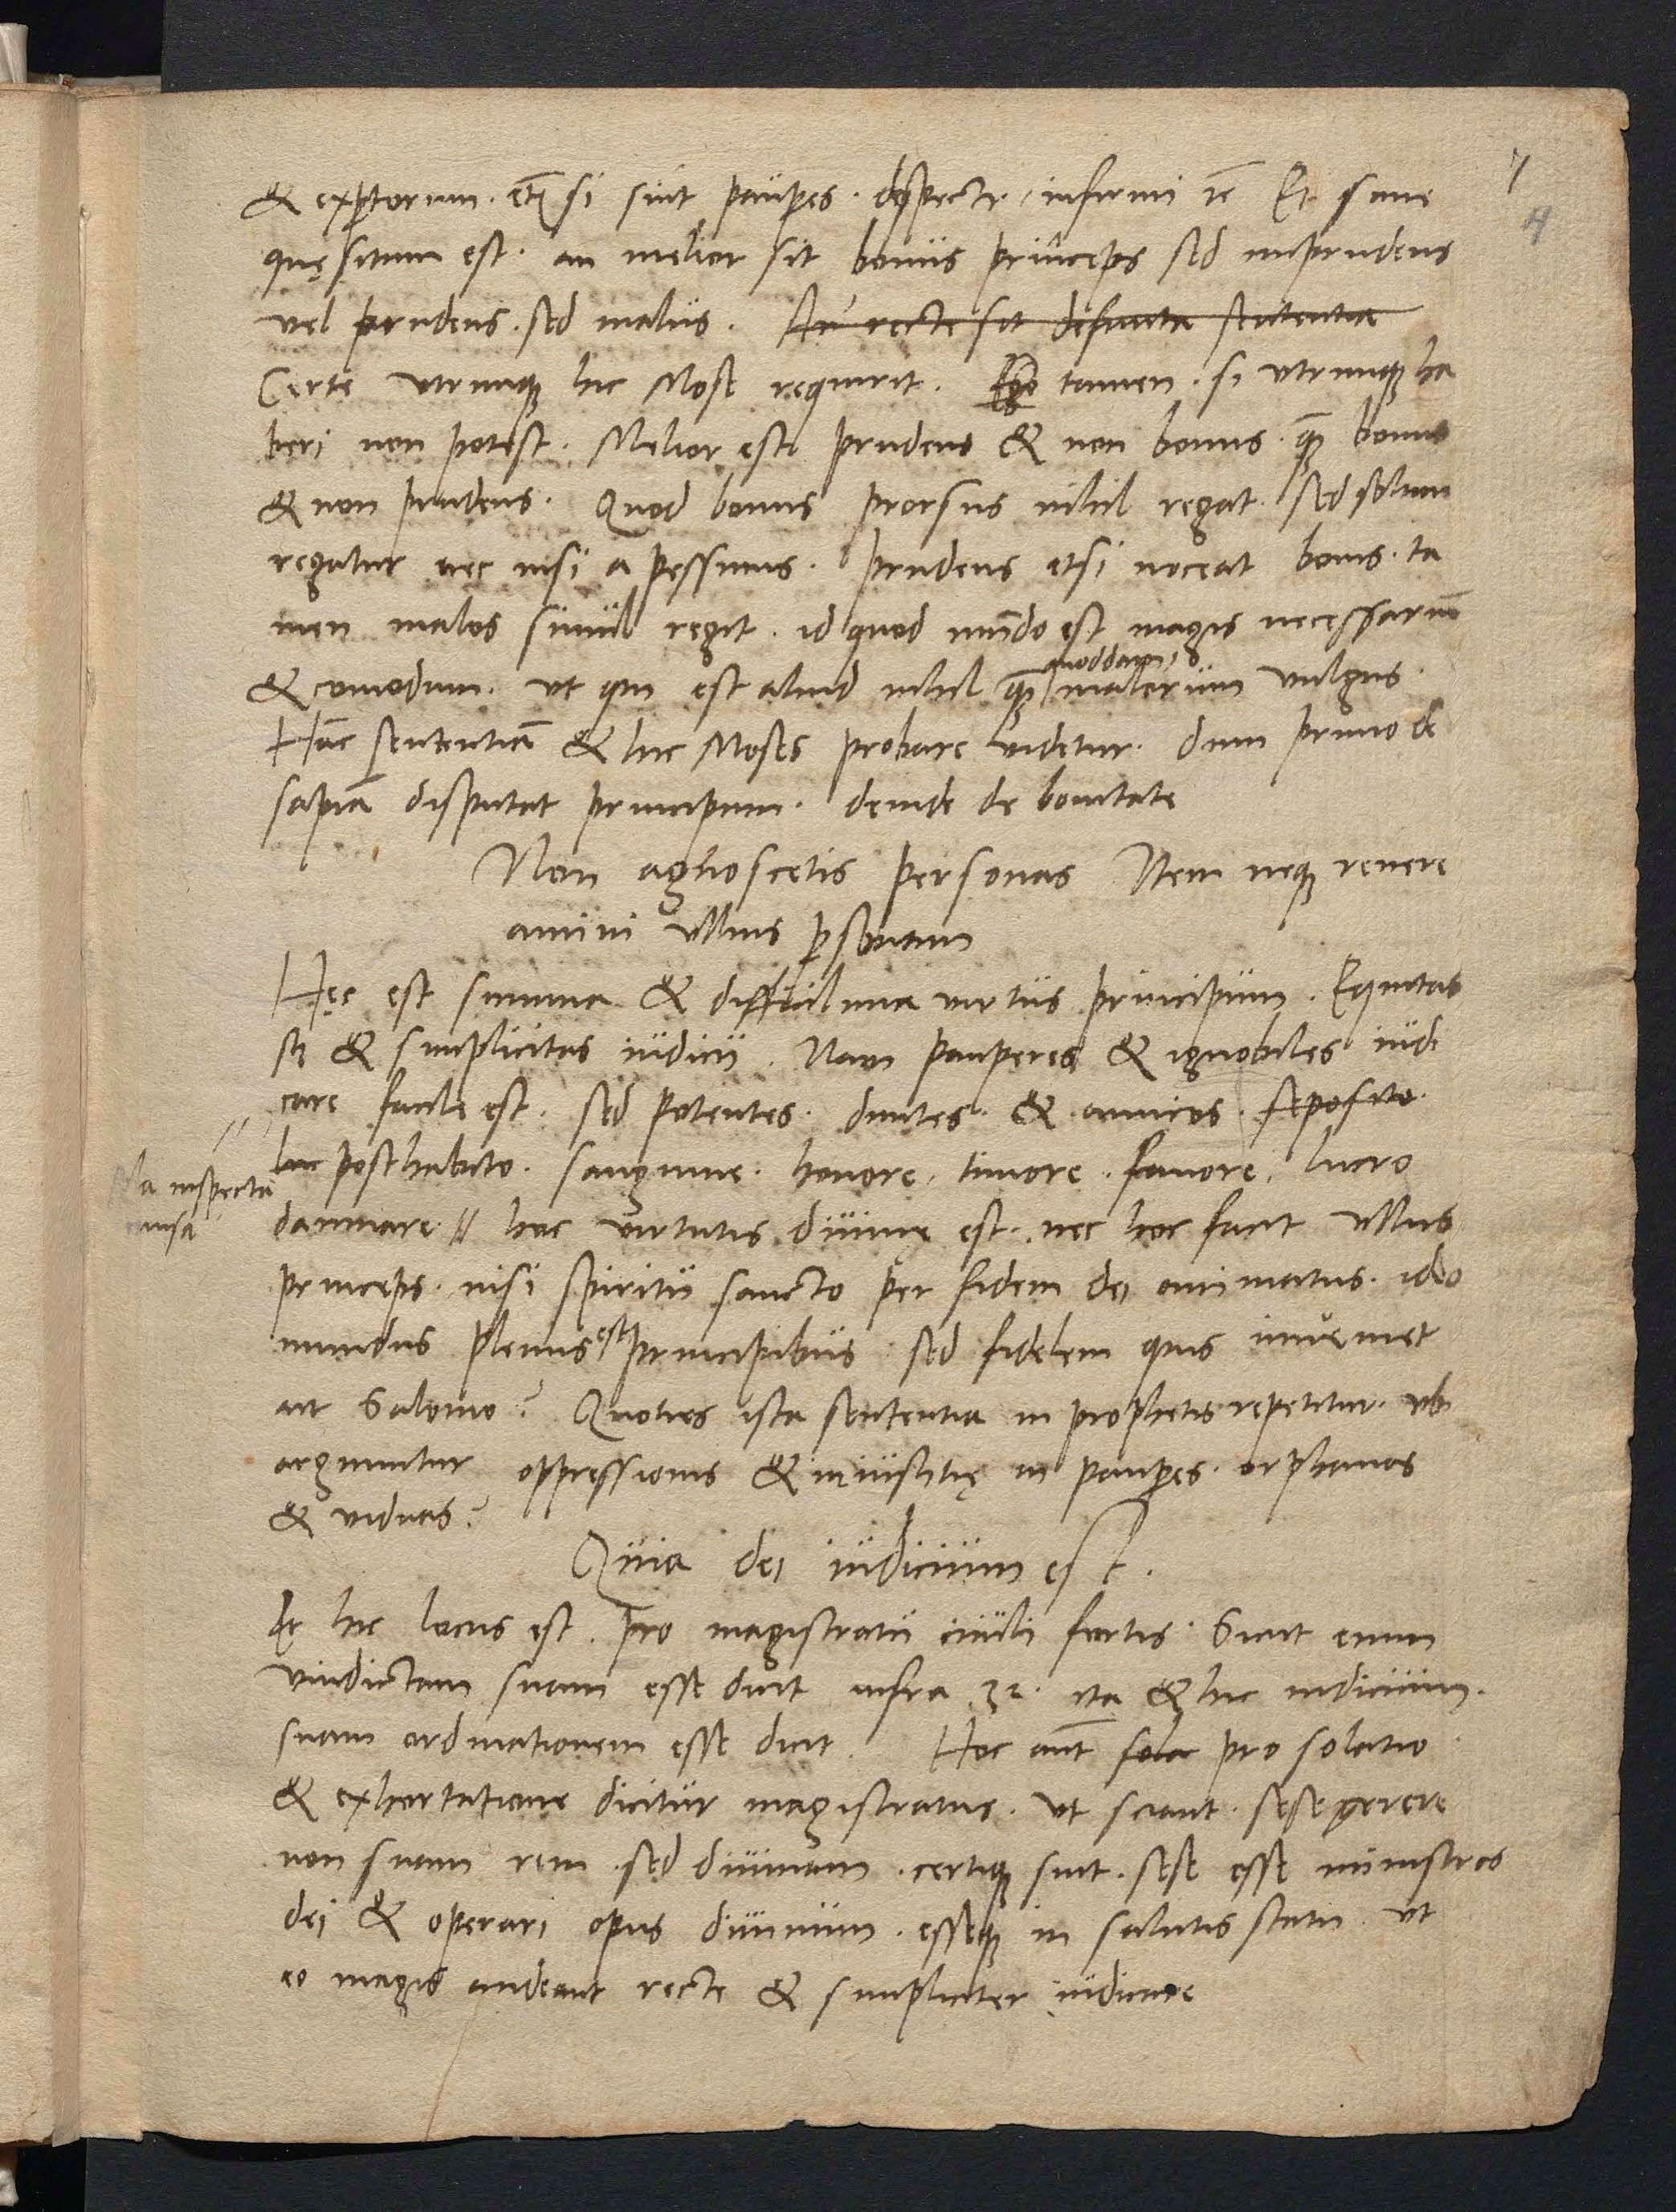 7
4
& exptorum. etiã si sint paup̃es. despecti, infirmi ꝛc̃ Et sane
quęsitum est. an melior sit bonus princeps sed imprudens
vel prudens. sed malus. An recte sit definita sententia
Certe vtrunq; hic Mose requirit. Ego tamen. si vtrunq; ha
beri non potest. Melior est prudens & non bonus. quã bonus
& non prudens. Quod bonus prorsus nihil regat. sed solum
regatur nec nisi a pessimis. Prudens etsi noceat bonis. ta
men malos simul regit. id quod mũdo est magis necessariũ
& comodum. vt qui est aliud nihil quã quoddam malorum vulgus.
Hãc sententiã & hic Moses probare videtur. dum primo de
sapiã disputat principum. deinde de bonitate
Non agnoscetis personas Item neq; revere
amini vllius p̃sonam
Hęc est summa & difficilima virtus principum. Equitas
scz & simplicitas iudicii. Nam pauperes & ignobiles iudi
care facile est. sed potentes. diuites. & amicos. seposito
hic posthabito. sanguine. honore, timore. fauore, lucro
a inspecta
causa
damnare // hoc virtutis diuinę est. nec hoc facit vllus
princeps. nisi spiritu sancto per fidem dei animatus. ideo
mundus plenus est principibus sed fidelem quis inveniet
ait Salomo? Quoties ista sententia in prophetis repetitur. vbi
arguuntur oppressionis & iniustitię in paup̃es. orphanos
& viduas?
Quia dei iudicium est.
Et hic locus est. pro magistratu ciuili fortis. Sicut enim
vindictam suam esse dicit infra 32. ita & hic iudicium.
suam ordinationem esse dicit. Hoc aut̃ sola pro solatio
& exhortatione dicitur magistratus. vt sciant. sese gerere
non suam rem. sed diuinam. certiq; sint. sese esse ministros
dei & operari opus diuinum. esseq; in salutis statu. vt
eo magis audeant recte & simpliciter iudicare